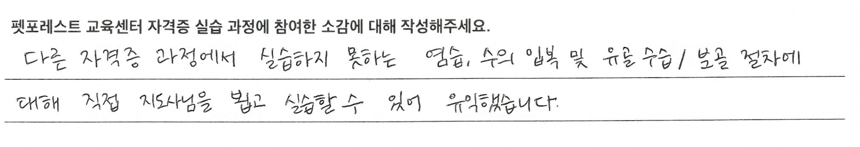 펫포레스트 교육센터 자격증 실습 과정에 참여한 소감에 대해 작성해주세요.
다른 자격증 과정에서 실습하지 못하는 염습, 수의 입복 및 유골 수습/보골 절차에
대해 직접 지도사님을 뵙고 실습할 수 있어 유익했습니다.